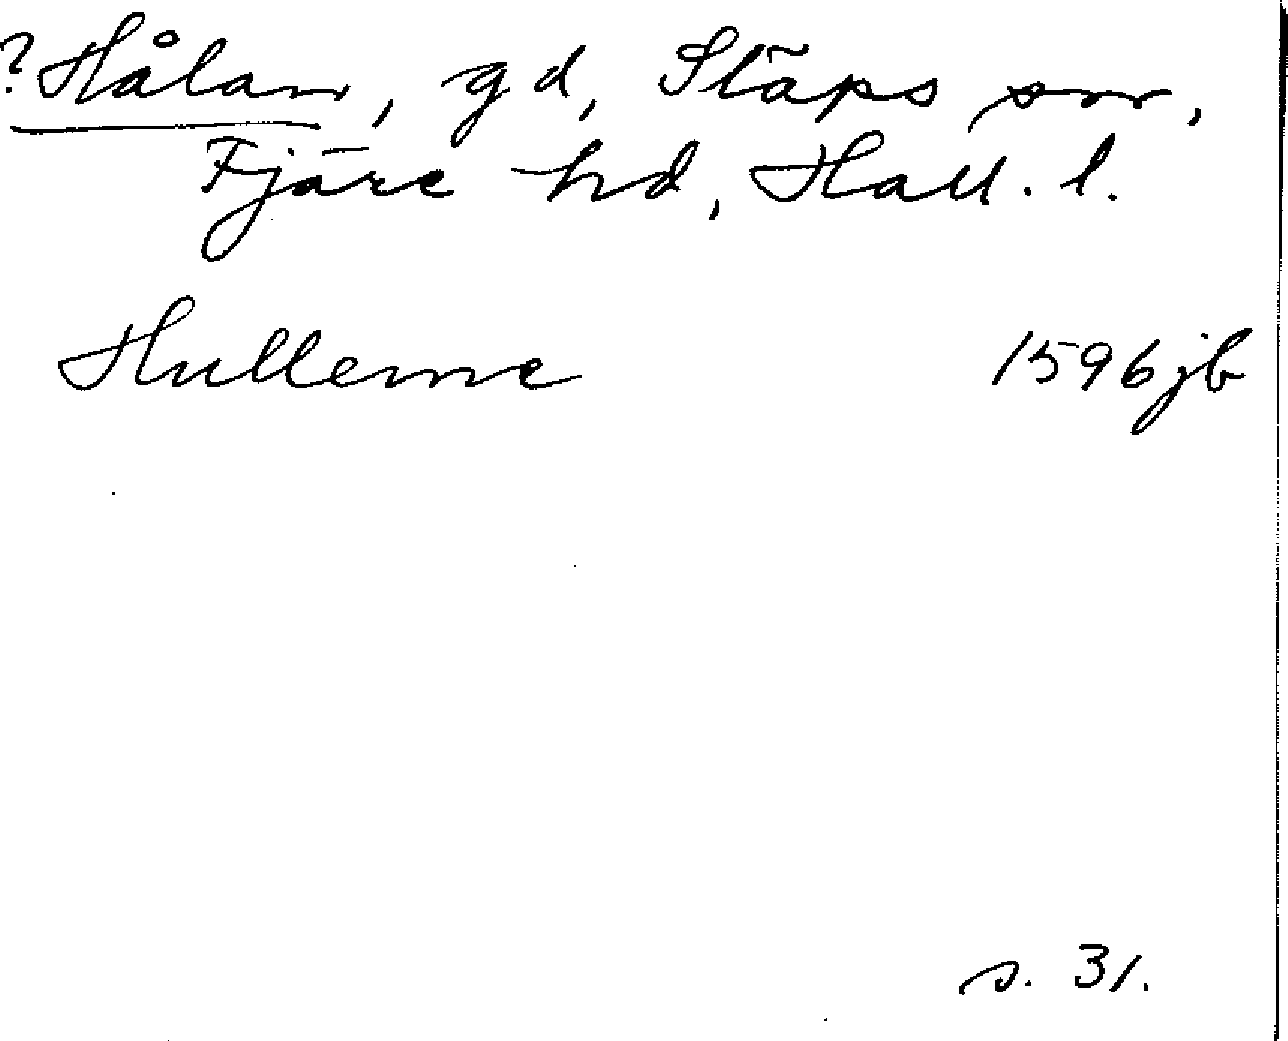 ?Hålan, gd, Släps sn,
Fjäre hd, Hall. l.
Hullerne 1596 jb
s. 31.